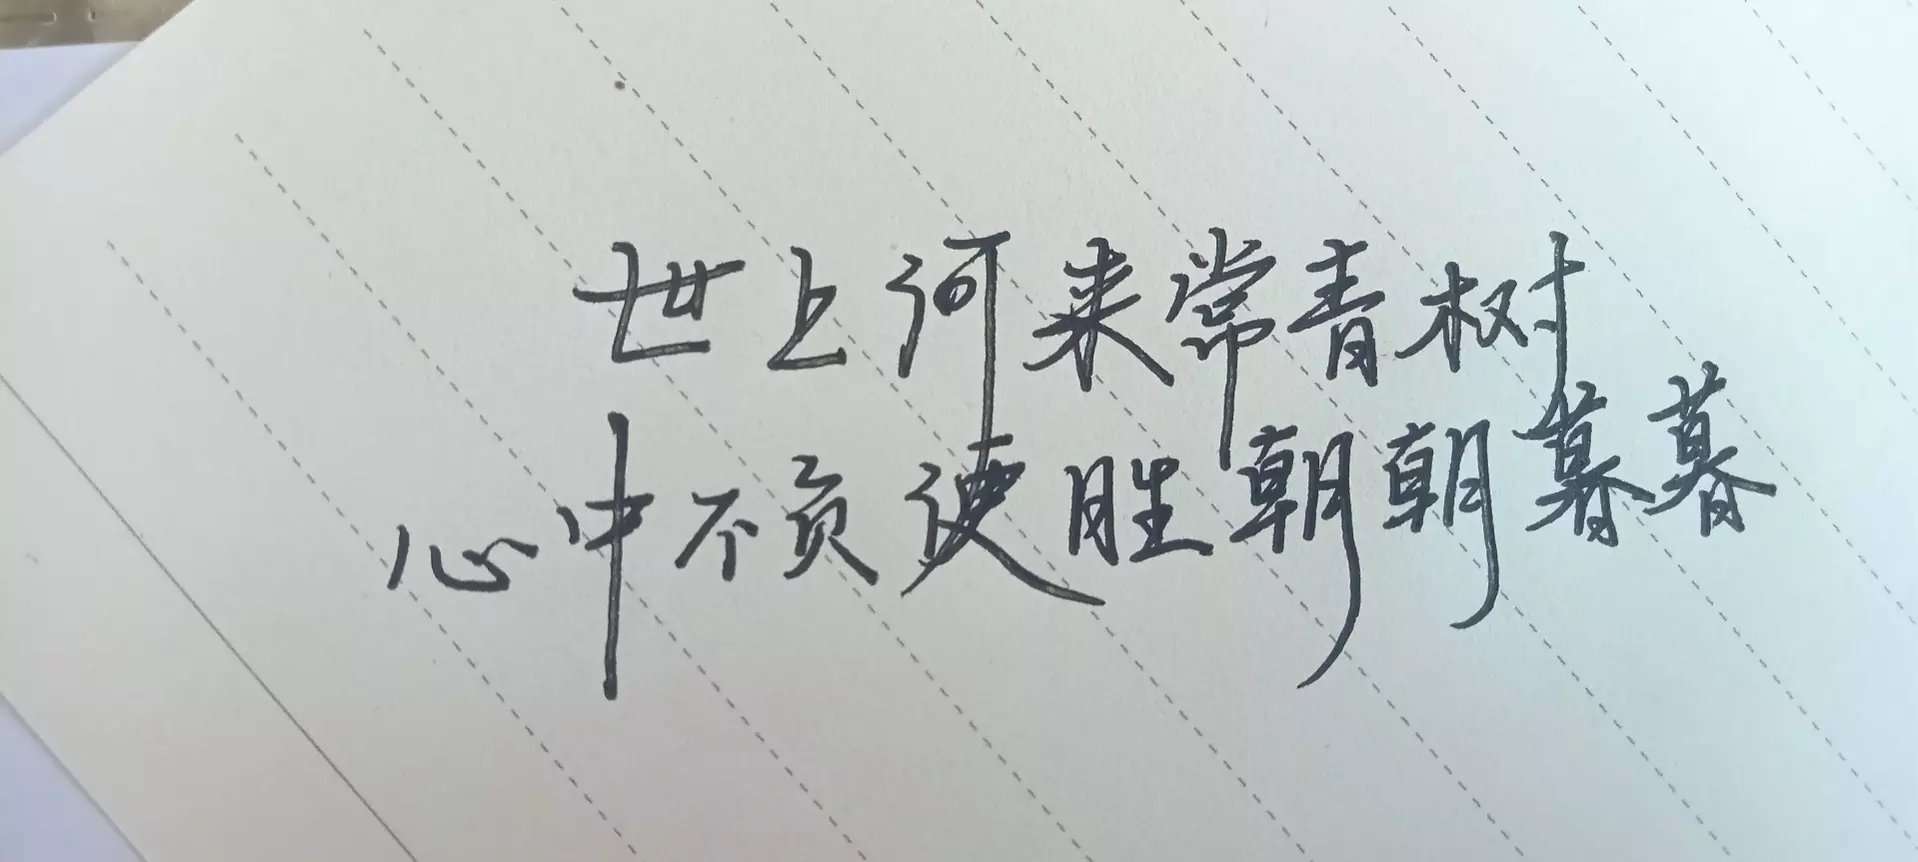 世上何来常青树
心中不负便胜朝朝暮暮